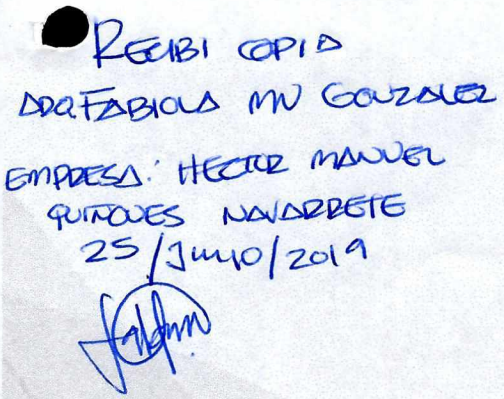 RECIBI COPIA
ARQ. FABIOLA GONZALEZ
EMPRESA: HECTOR MANUEL
QUIÑONES NAVARRETE
25/ /2019